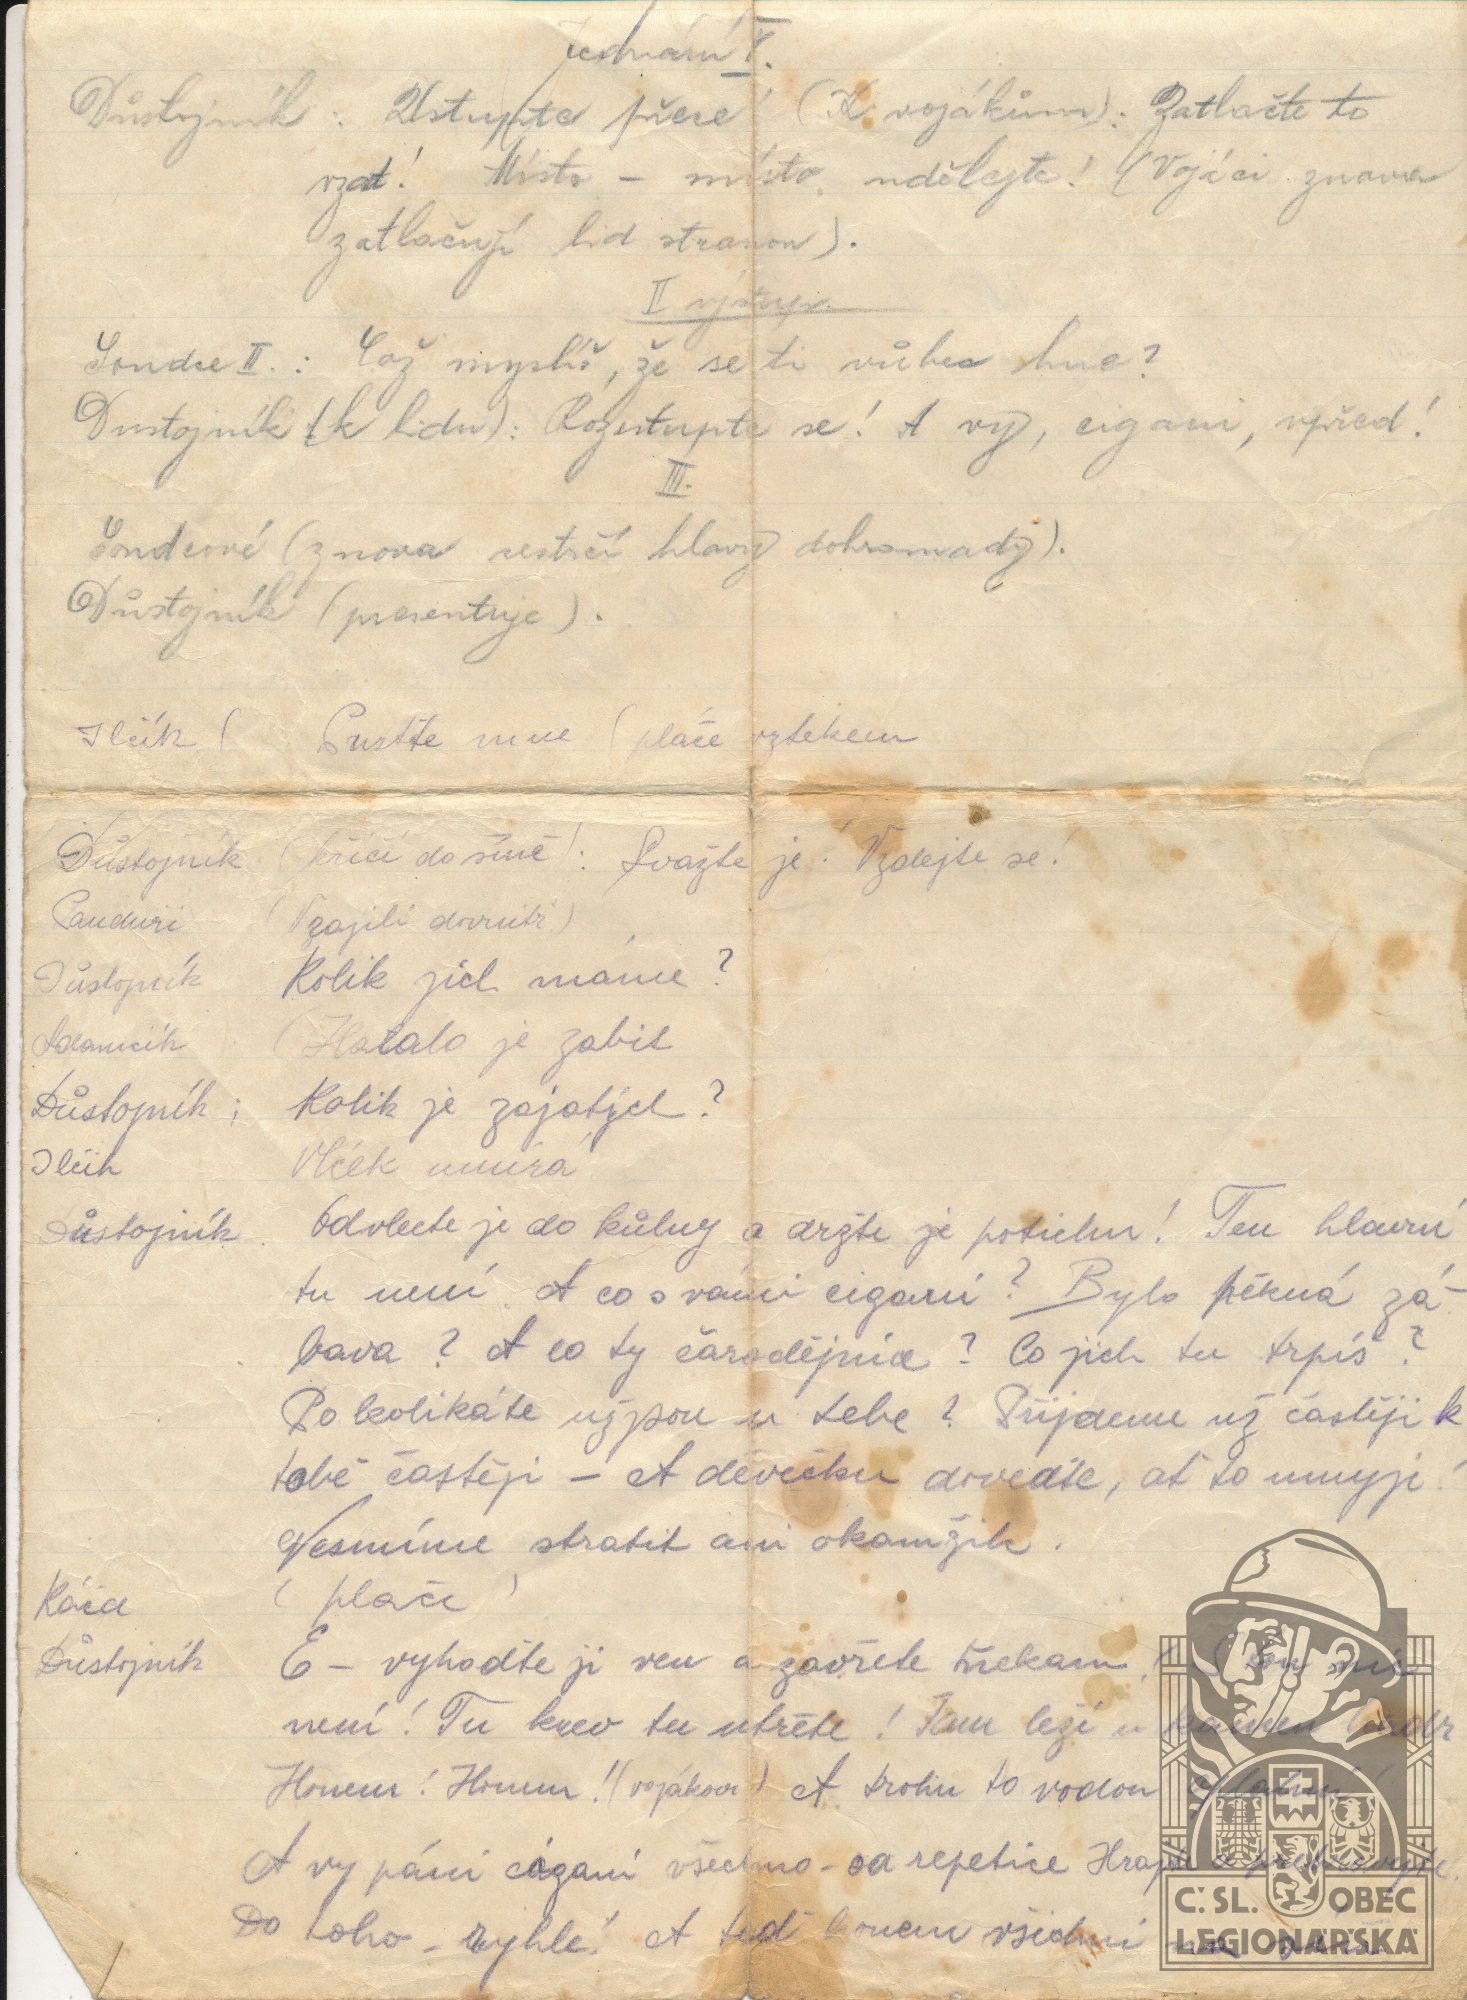 Jednání I.
Důstojník : Ustupte přece (K vojákům): Zatlačte to
vzad! Místo – místo, udělejte! (Vojáci znova
zatlačují lid stranou).
II výstup.
Soudce II. : Což myslíš, že se ti vůbec hne?
Dustojník (k lidu): Rozestupte se! A vy, cigani, vpřed!
III.
Soudcové (znova sestrčí hlavy dohromady).
Důstojník (presentuje).
Ilčík ( Pusťte mne (pláče vztekem
Důstojník (křičí do síně!: Svažte je! Vzdejte se!
Panduři (Vrazili dovnitř)
Důstojník Kolik jich máme?
Adamčík (Hatalo je zabit
Důstojník : Kolik je zajatých?
Ilčík Vlček umírá
Důstojník Odvlecte je do kůlny a držte je potichu! Ten hlavní
tu není. A co s vámi cigani? Bylo pěkná zá-
bava? A co ty čarodějnice? Co jich tu trpíš?
Po kolikáte už jsou u tebe? Přijdeme už častěji k
tobě častěji – A děvečku doveďte, ať to umyje!
Nesmíme stratit ani okamžik.
Káča (pláče)
Důstojník E – vyhoďte ji ven a zavřete
není! Tu krev tu utřete! Tam leží u kamen
Honem! Honem! (vojákovi) A trohu to vodou
A vy páni cigani všechno - sa repetice Hrajte
Do toho – rychle! A teď honem všichni
Č. SL. OBEC
LEGIONÁŘSKÁ